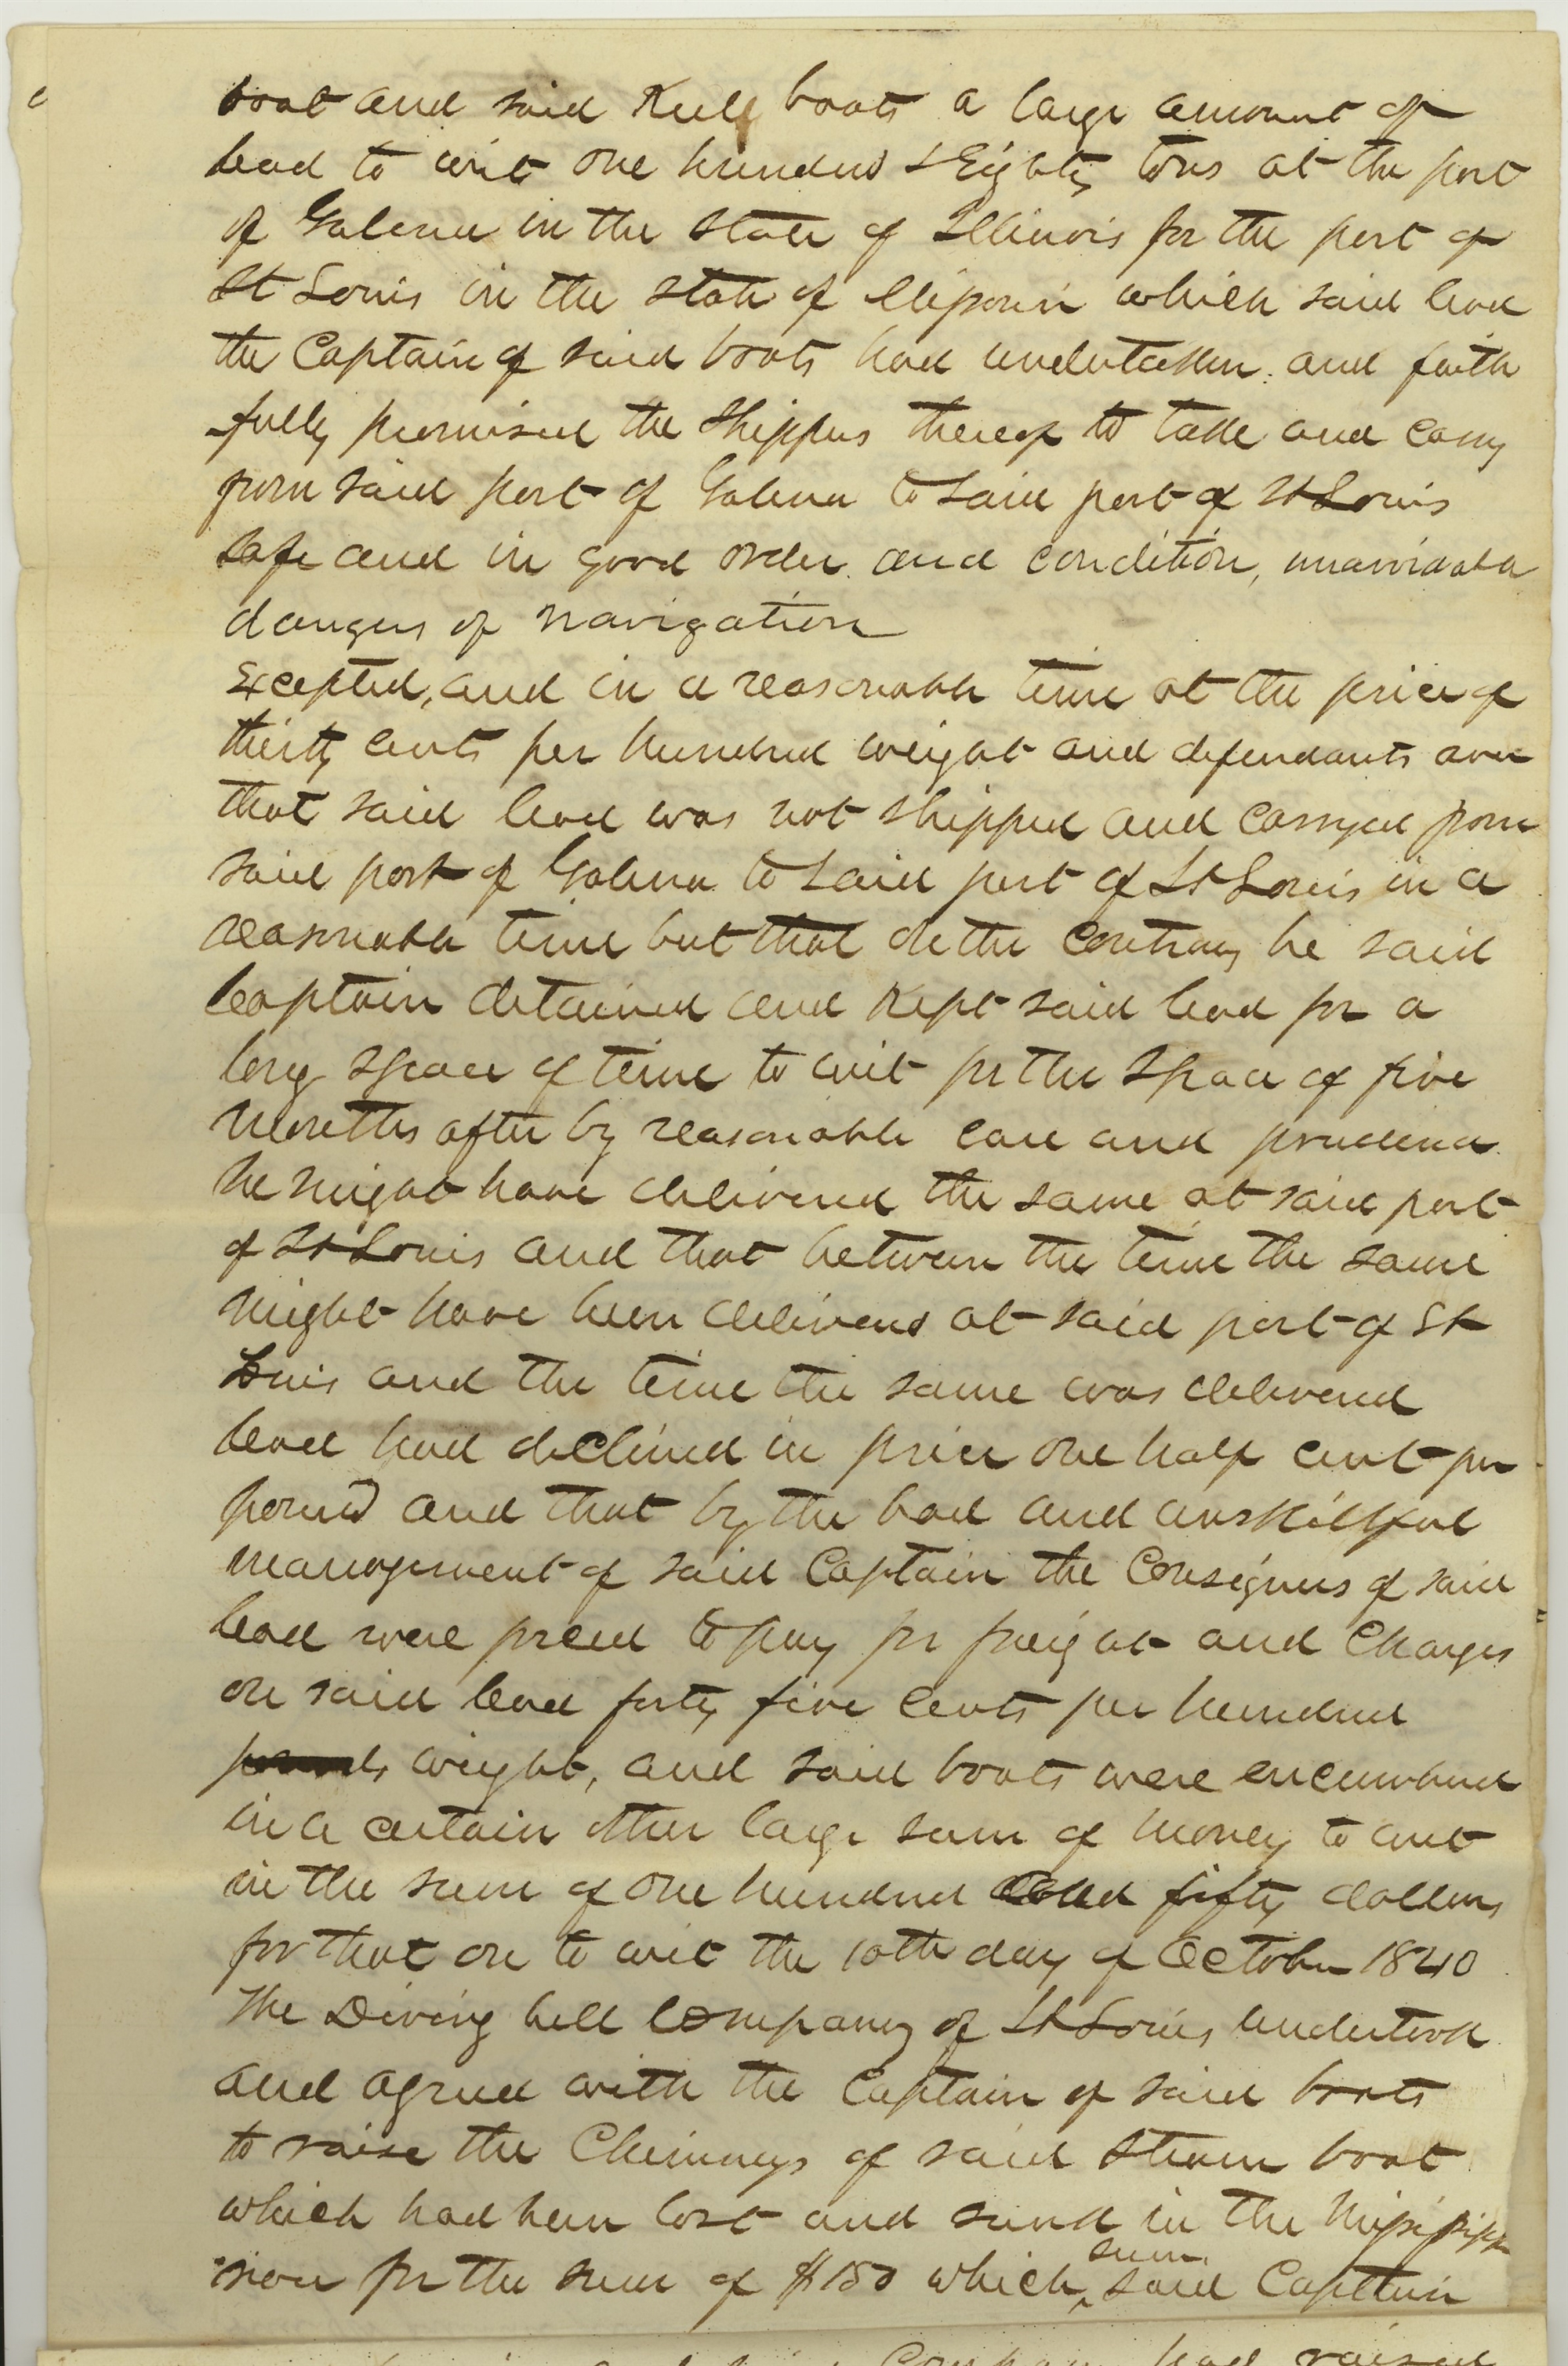 boat and said Keel boats a large amount of
lead to wit one hundred & Eighty tons at the port
of Galena in the State of Illinois for the port of
St Louis in the State of Missouri which said lead
the Captain of said boats had undertaken and faith
fully promised the Shippers thereof to take and carry
from said port of Galena to said port of St Louis
safe and in good order and condition, unavoidable
dangers of navigation
Excepted, and in a reasonable time at the price of
thirty cents per hundred weight and defendants aver
that said lead was not shipped and carryed from
said port of Galena to said port of St Louis in a
reasonable time but that on the contrary he said
Captain detained and Kept said lead for a
long space of time to wit for the space of five
months after by reasonable care and prudence
he might have delivered the same at said port
of St Louis and that between the time the same
might have been delivered at said port of St
Louis and the time the same was delivered
lead had declined in price one half cent per
pound and that by the bad and unskillful
management of said Captain the Consignees of said
lead were forced to pay for freight and Charges
on said lead forty five cents per hundred
pounds weight, and said boats were encumbered
in a certain other large sum of money to wit
in the sum of one hundred and fifty dollars
for that on to wit the 10th day of October 1840
The Diving bell Company of St Louis undertook
and agreed with the Captain of said boats
to raise the Chimneys of said Steam boat
which had been lost and sunk in the Mississippi
river for the sum of $150 which sum said Captain
Company had raised